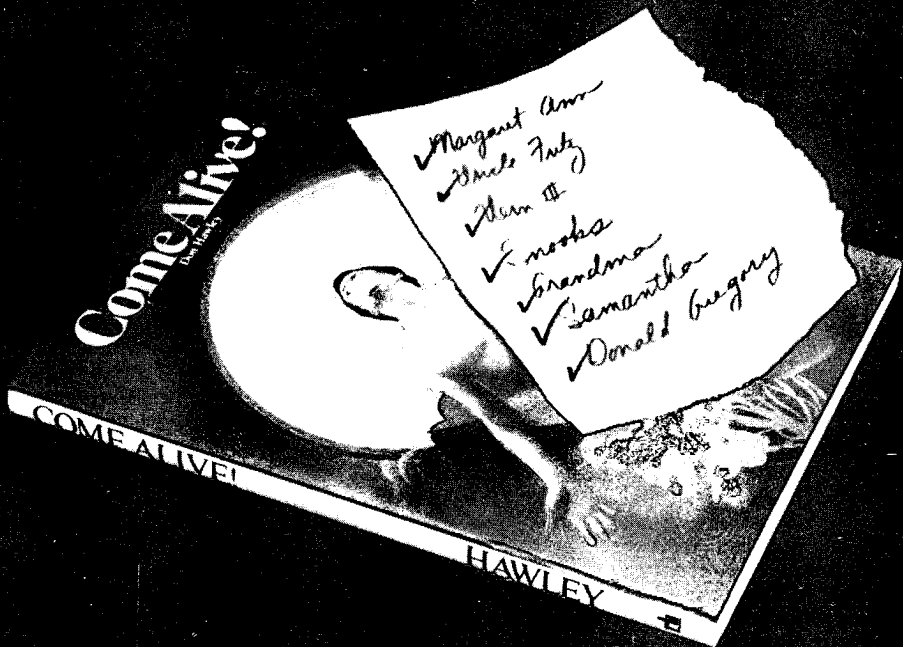 Come Alive!
Don Hawley
Margaret Ann
Uncle Fritz
Hern III
Snooks
Grandma
Samantha
Donald Gregory
COME ALIVE!
HAWLEY